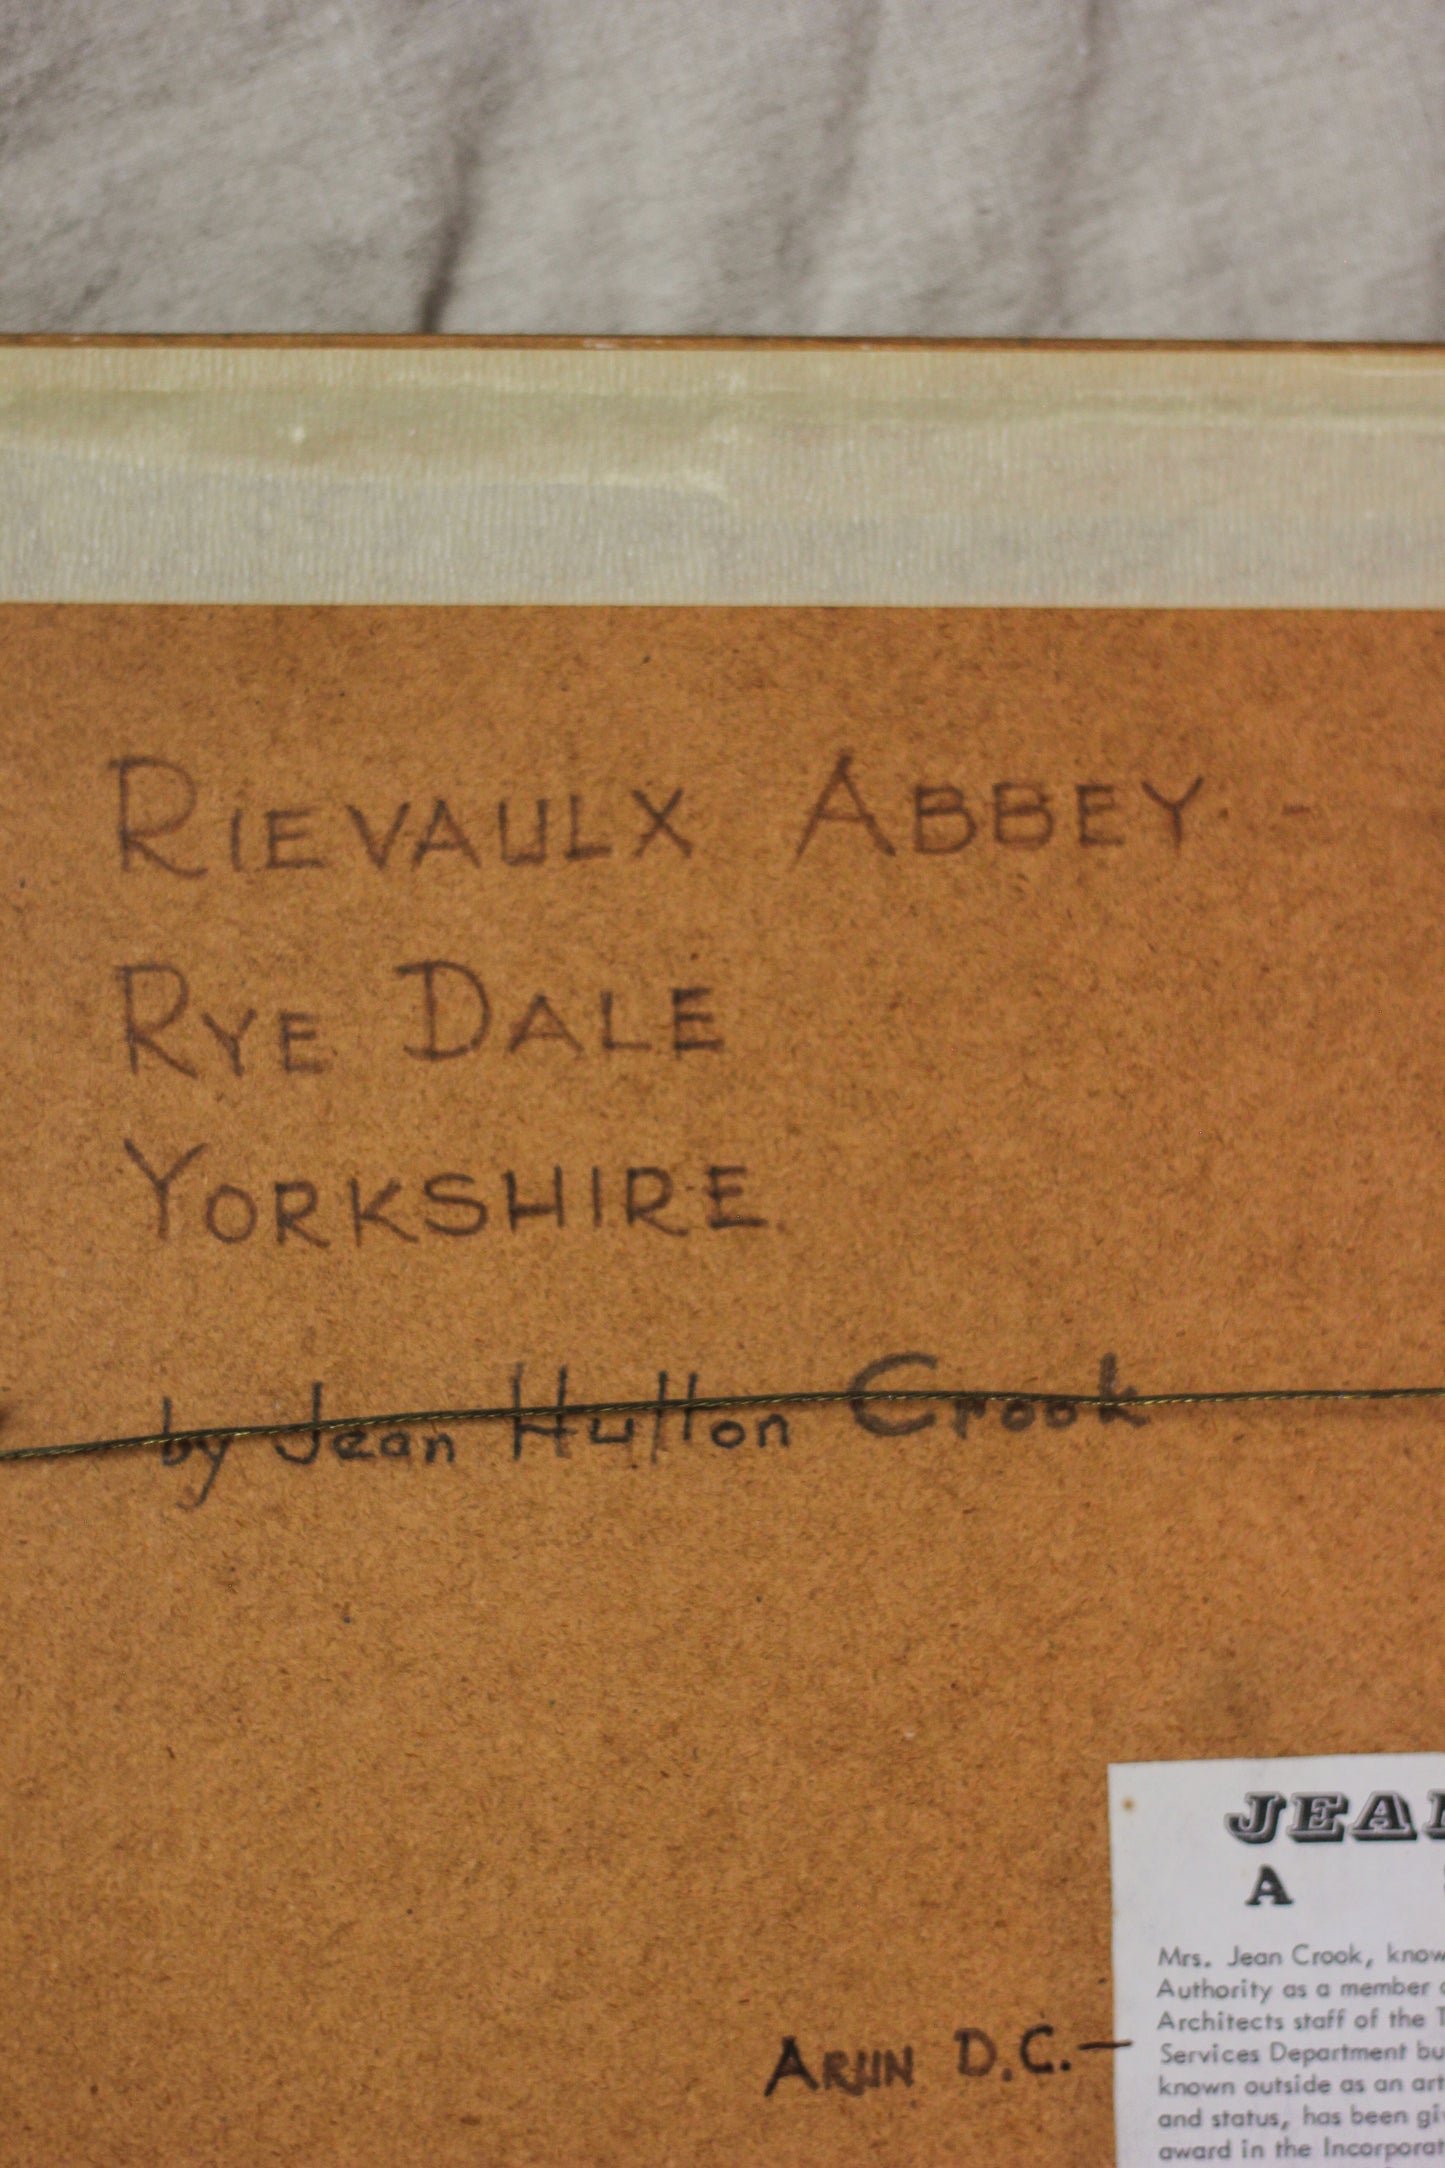 RIEVAULX ABBEY -
RYE DALE
YORKSHIRE
by Jean Hutton Crook
JEAN
A
Mrs. Jean Crook, know
Authority as a member
Architects staff of the
Services Department bu
known outside as an art
and status, has been gi
award in the Incorporat
ARUN D.C. -